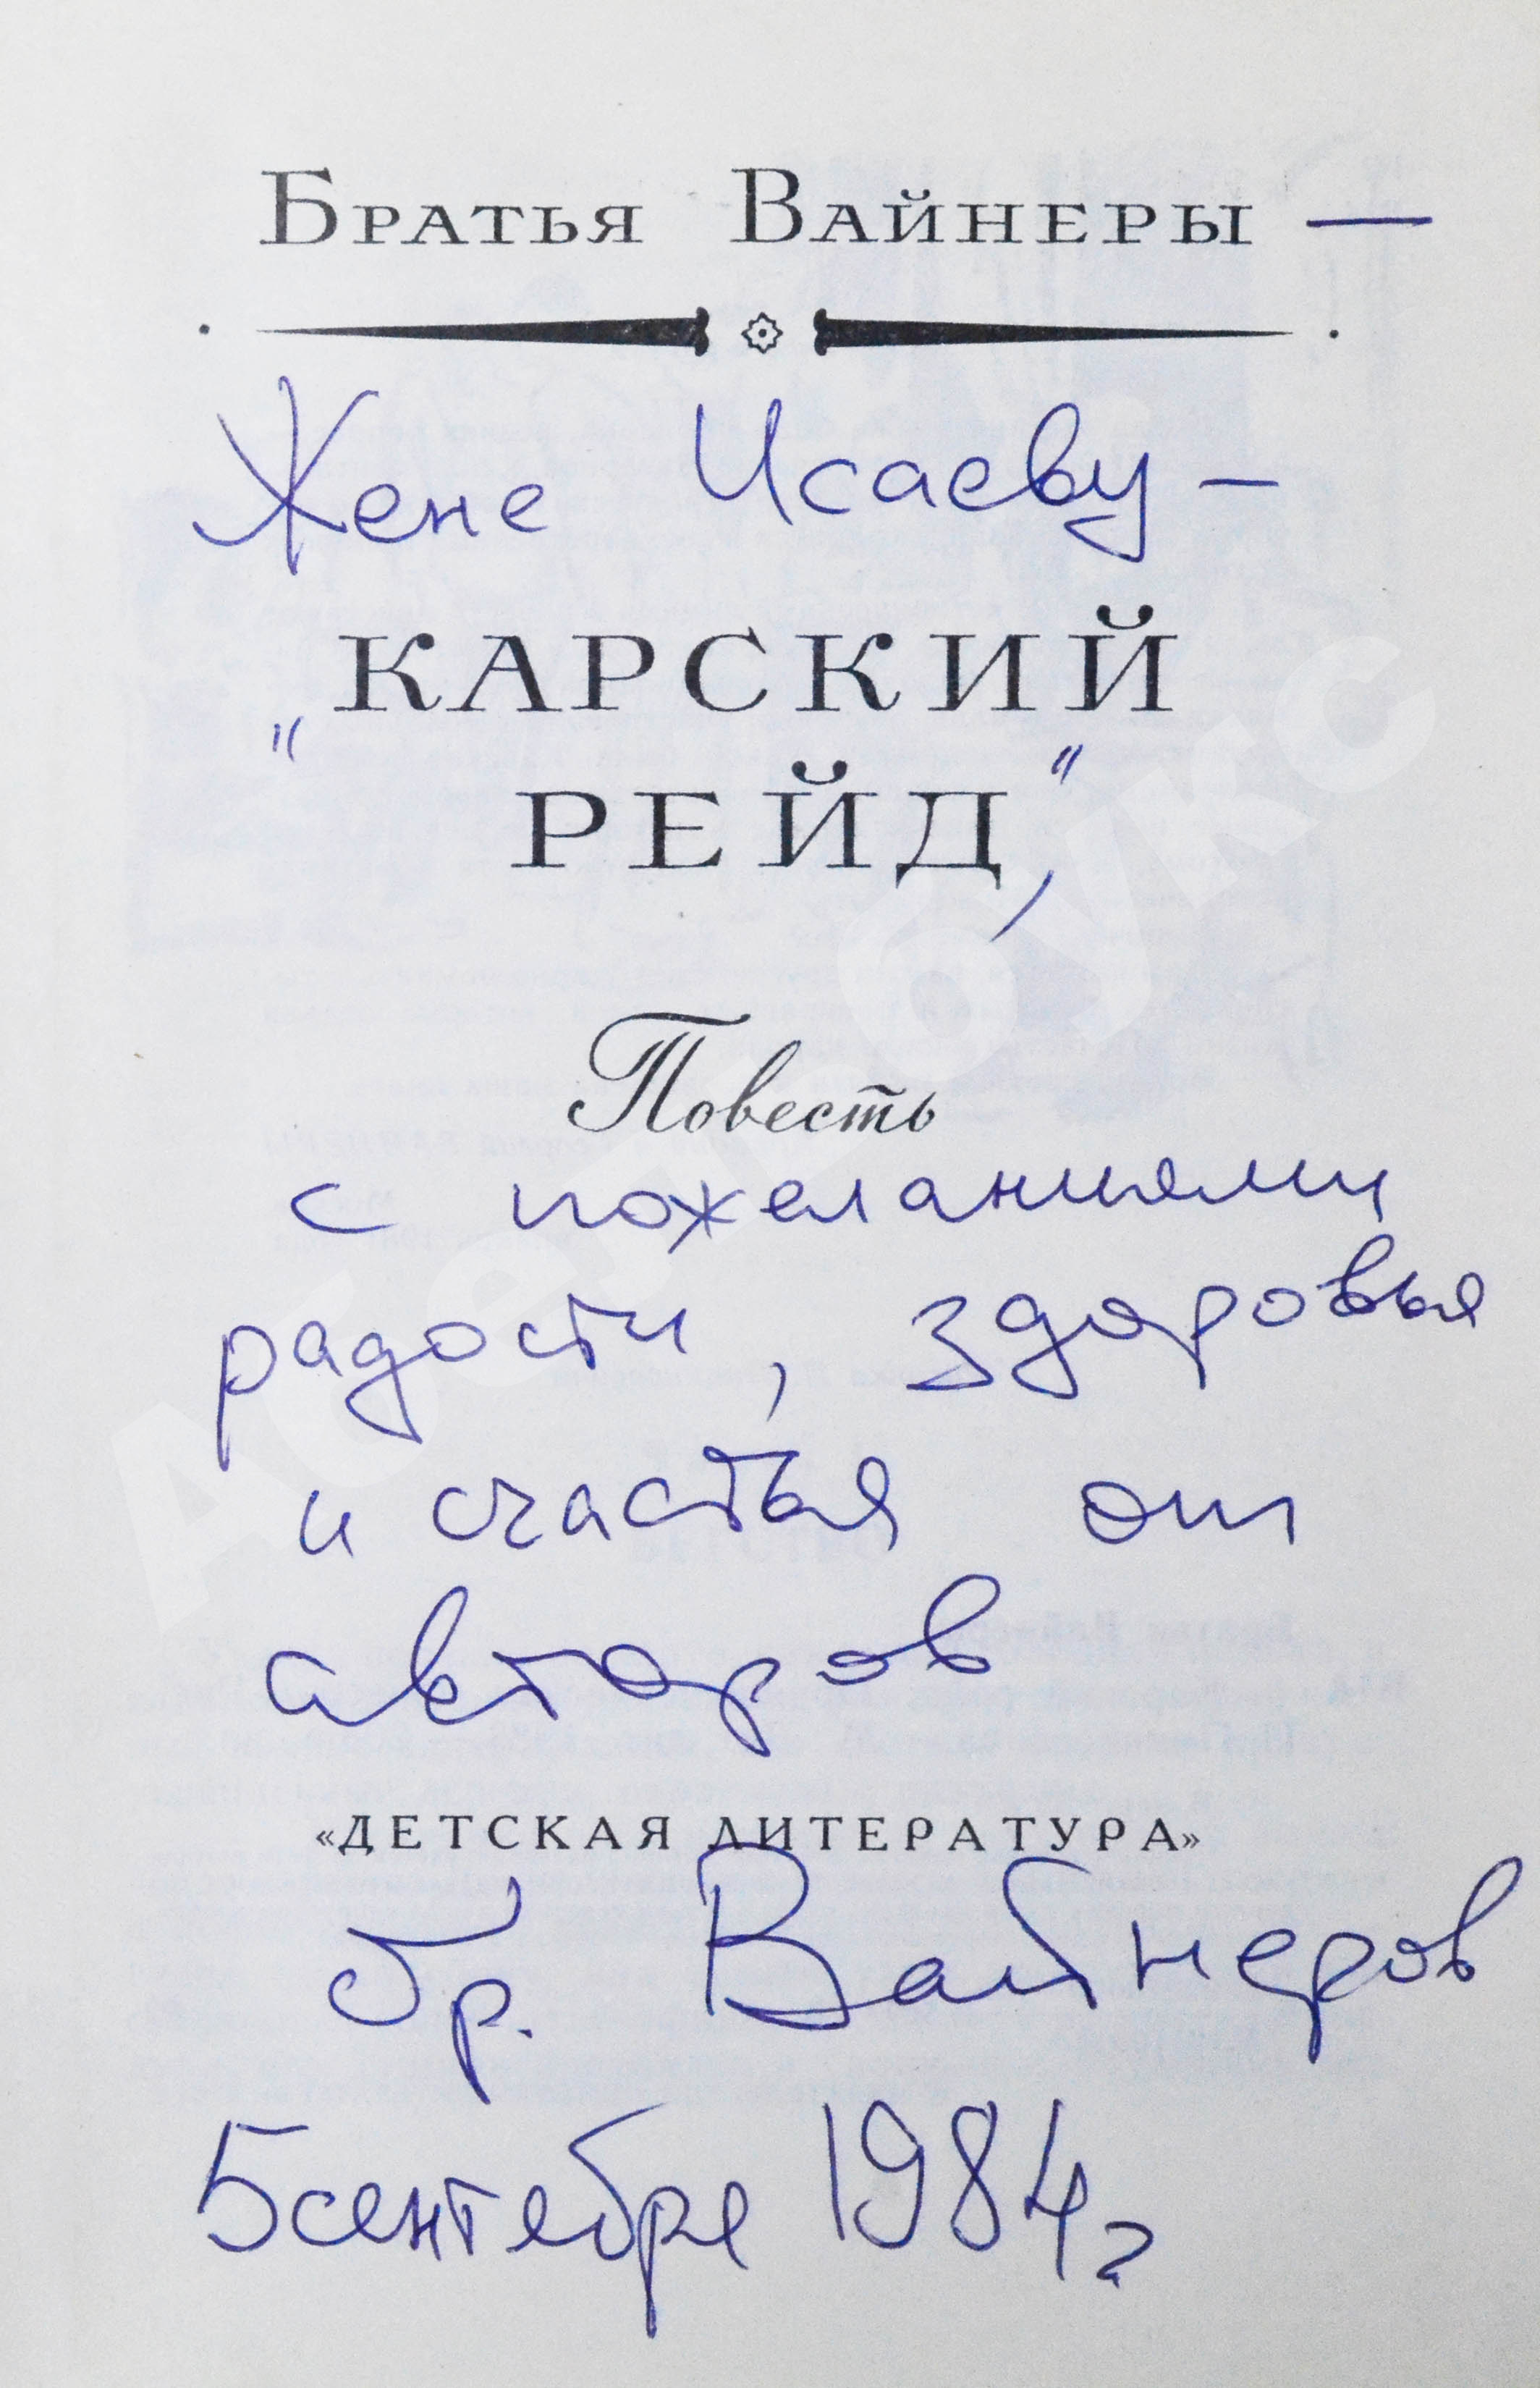 Братья Вайнеры —
Жене Исаеву —
КАРСКИЙ
"РЕЙД",
Повесть
с пожеланиями
радости, здоровья
и счастья от
авторов
«ДЕТСКАЯ ЛИТЕРАТУРА»
бр. Вайнеров
5 сентября 1984 г
АСТЕРБУКС